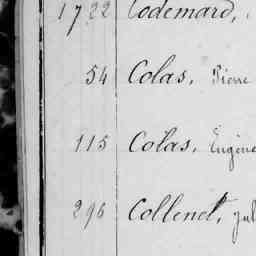 1722 Codemard,
54 Colas, Pierre
115 Colas, Eugène
296 Collenet, Jul